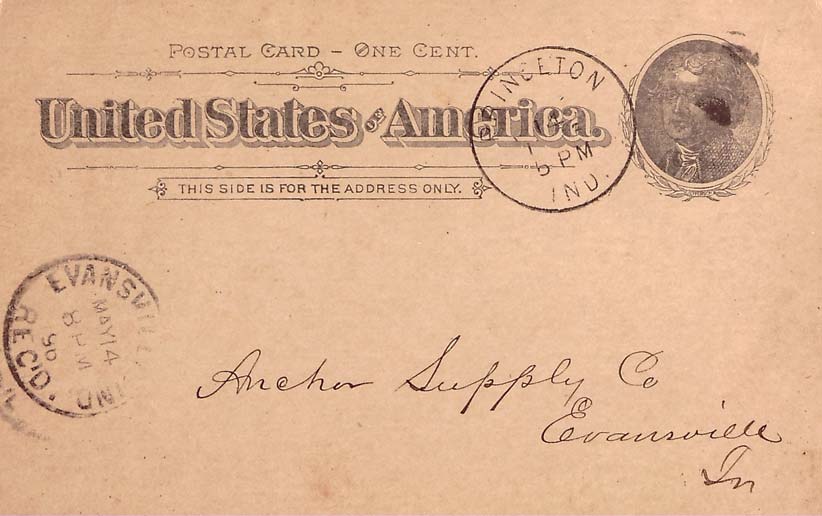 POSTAL CARD – ONE CENT.
United States of America.
THIS SIDE IS FOR THE ADDRESS ONLY.
PRINCETON
5 PM
IND.
EVANSVILLE, IND.
MAY 14
8 PM
REC'D.
Anchor Supply Co
Evansville
In